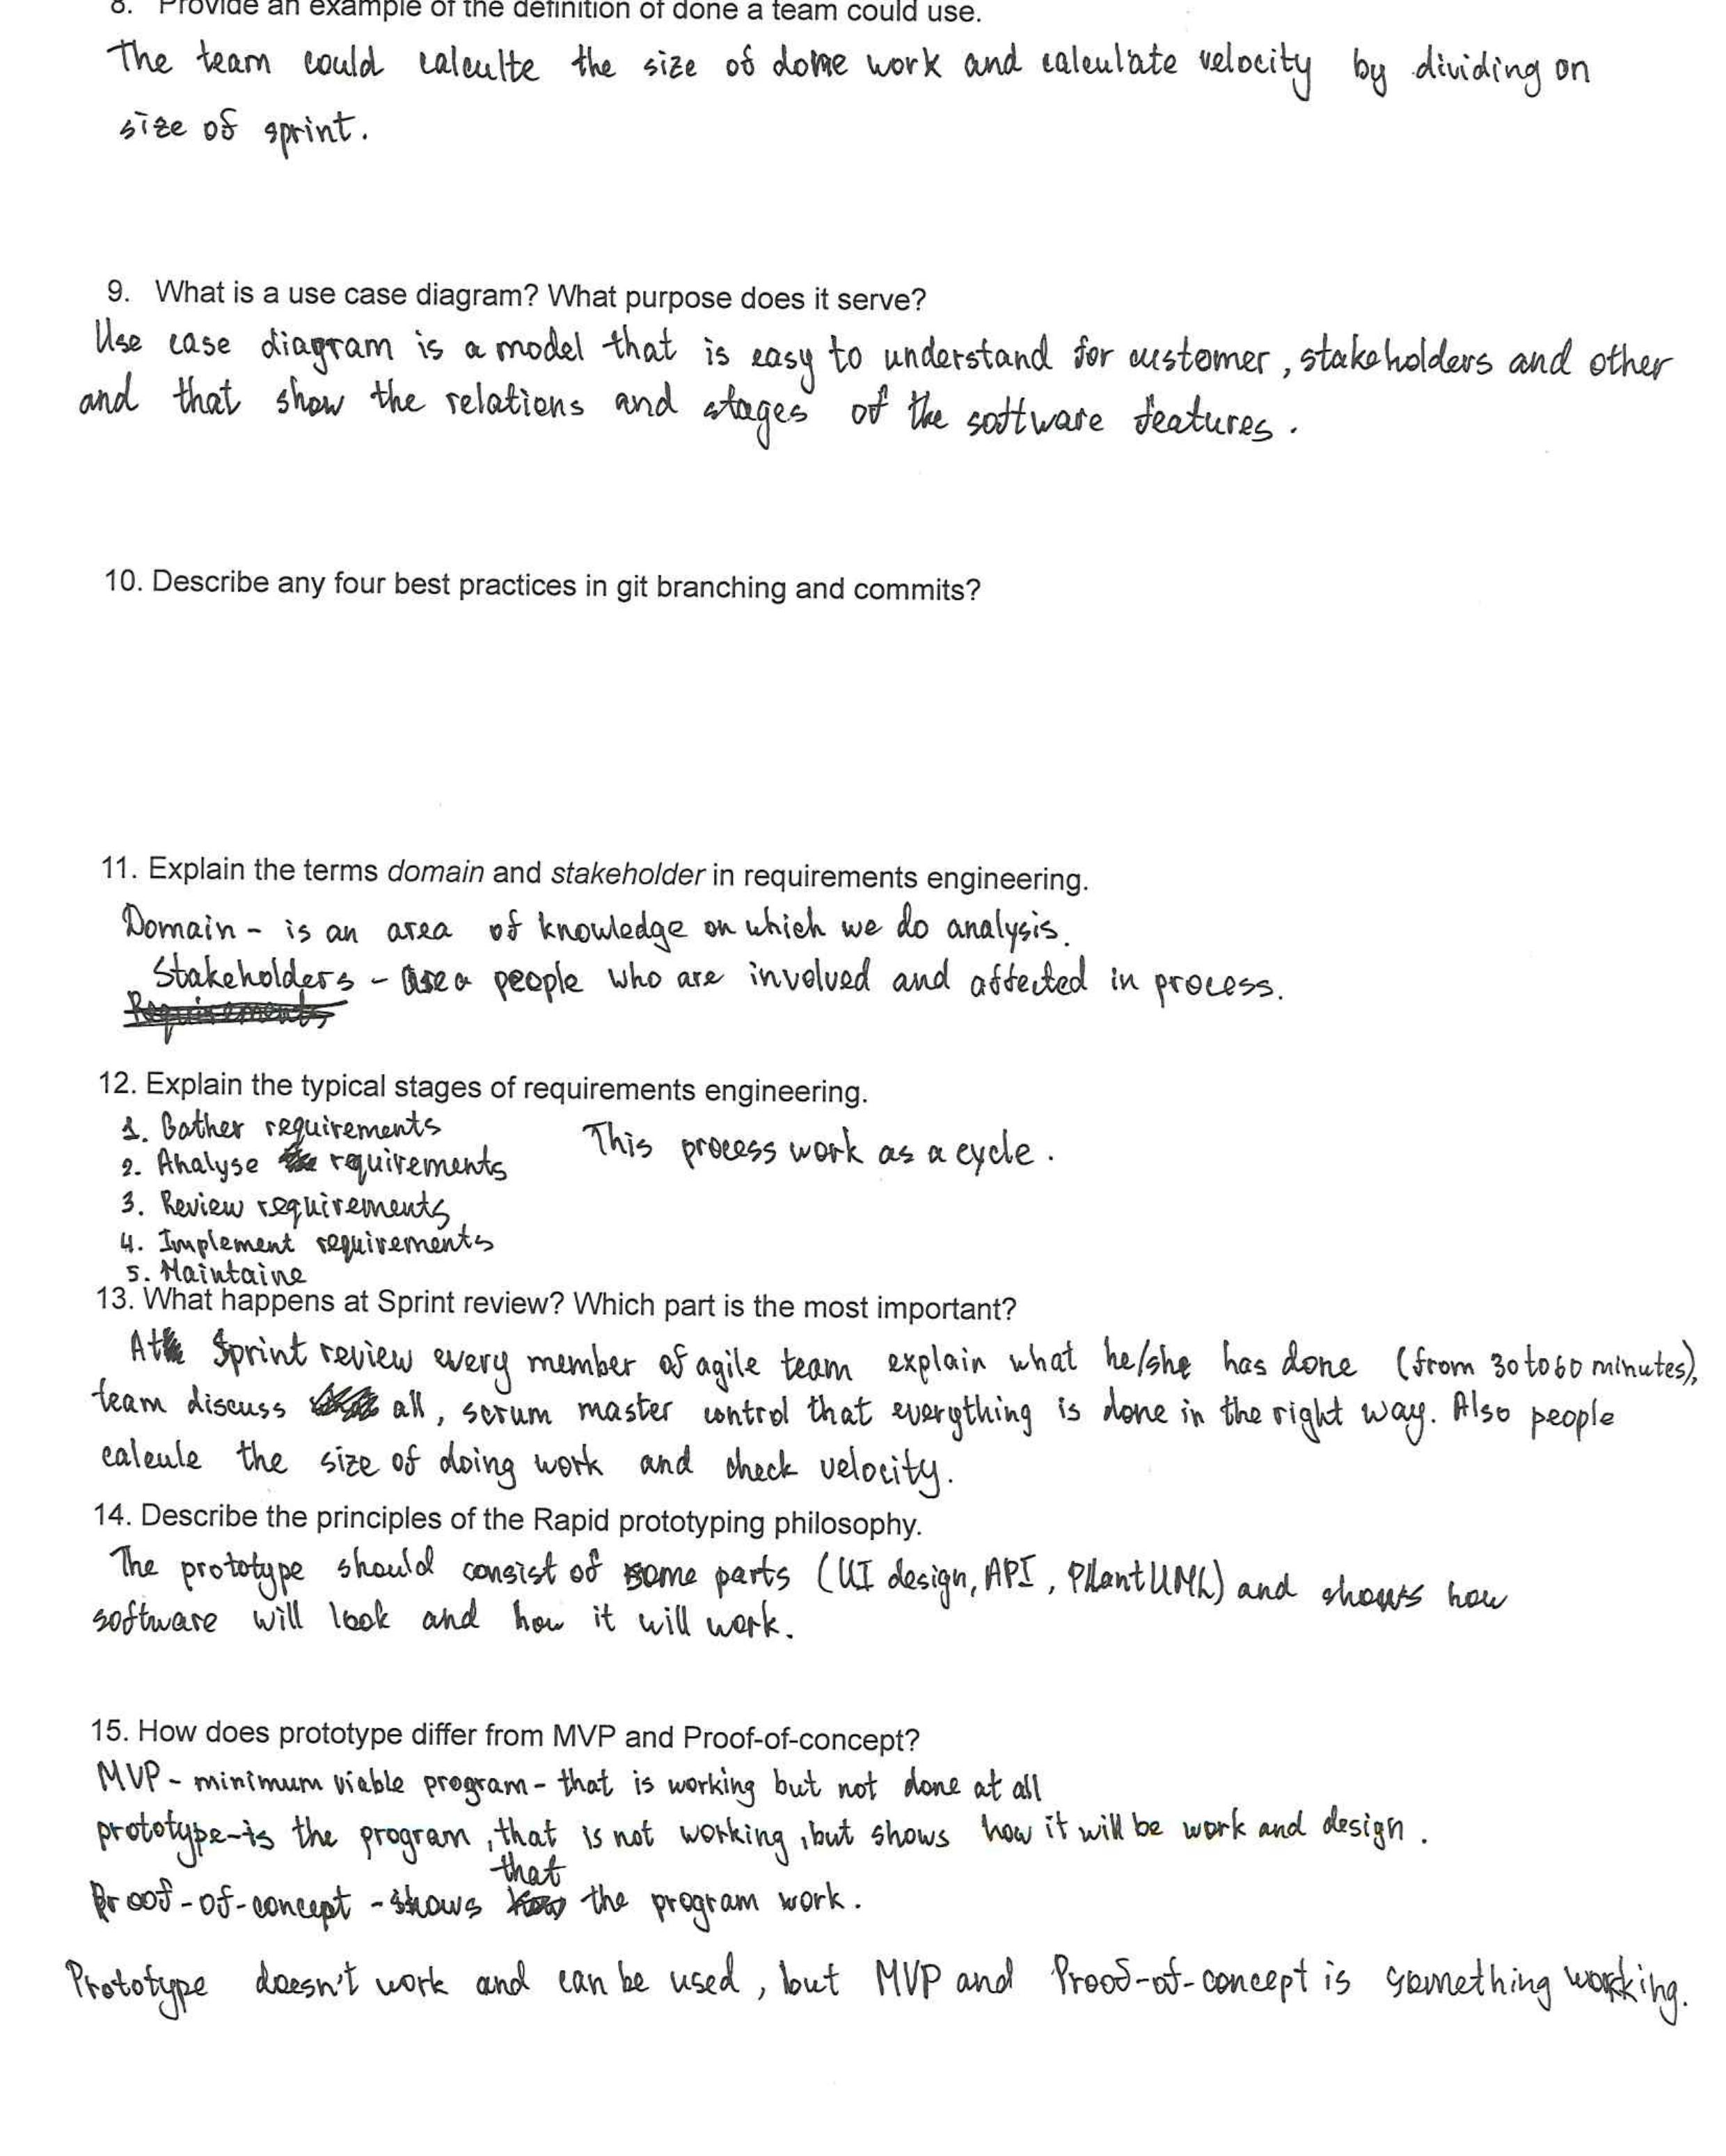 8. Provide an example of the definition of done a team could use.
The team could calculte the size of done work and calculate velocity by dividing on
size of sprint.
9. What is a use case diagram? What purpose does it serve?
Use case diagram is a model that is easy to understand for customer, stakeholders and other
and that show the relations and stages of the software features.
10. Describe any four best practices in git branching and commits?
11. Explain the terms domain and stakeholder in requirements engineering.
Domain - is an area of knowledge on which we do analysis.
Stakeholders - people who are involved and affected in process.
Requirements
12. Explain the typical stages of requirements engineering.
1. Gather requirements
This process work as a cycle.
2. Analyse requirements
3. Review requirements
4. Implement requirements
5. Maintaine
13. What happens at Sprint review? Which part is the most important?
At Sprint review every member of agile team explain what he/she has done (from 30 to 60 minutes),
team discuss all, scrum master control that everything is done in the right way. Also people
calcule the size of doing work and check velocity.
14. Describe the principles of the Rapid prototyping philosophy.
The prototype should consist of some parts (UI design, API, PlantUML) and shows how
software will look and how it will work.
15. How does prototype differ from MVP and Proof-of-concept?
MVP - minimum viable program - that is working but not done at all
prototype - is the program, that is not working, but shows how it will be work and design.
Proof-of-concept - shows that the program work.
Prototype doesn't work and can be used, but MVP and Proof-of-concept is something working.